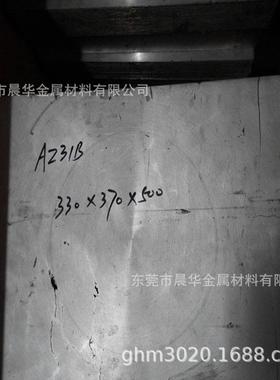 东莞市晨华金属材料有限公司
AZ31B
330×370×500
东莞市晨华金属材料有限公司
ghm3020.1688.co